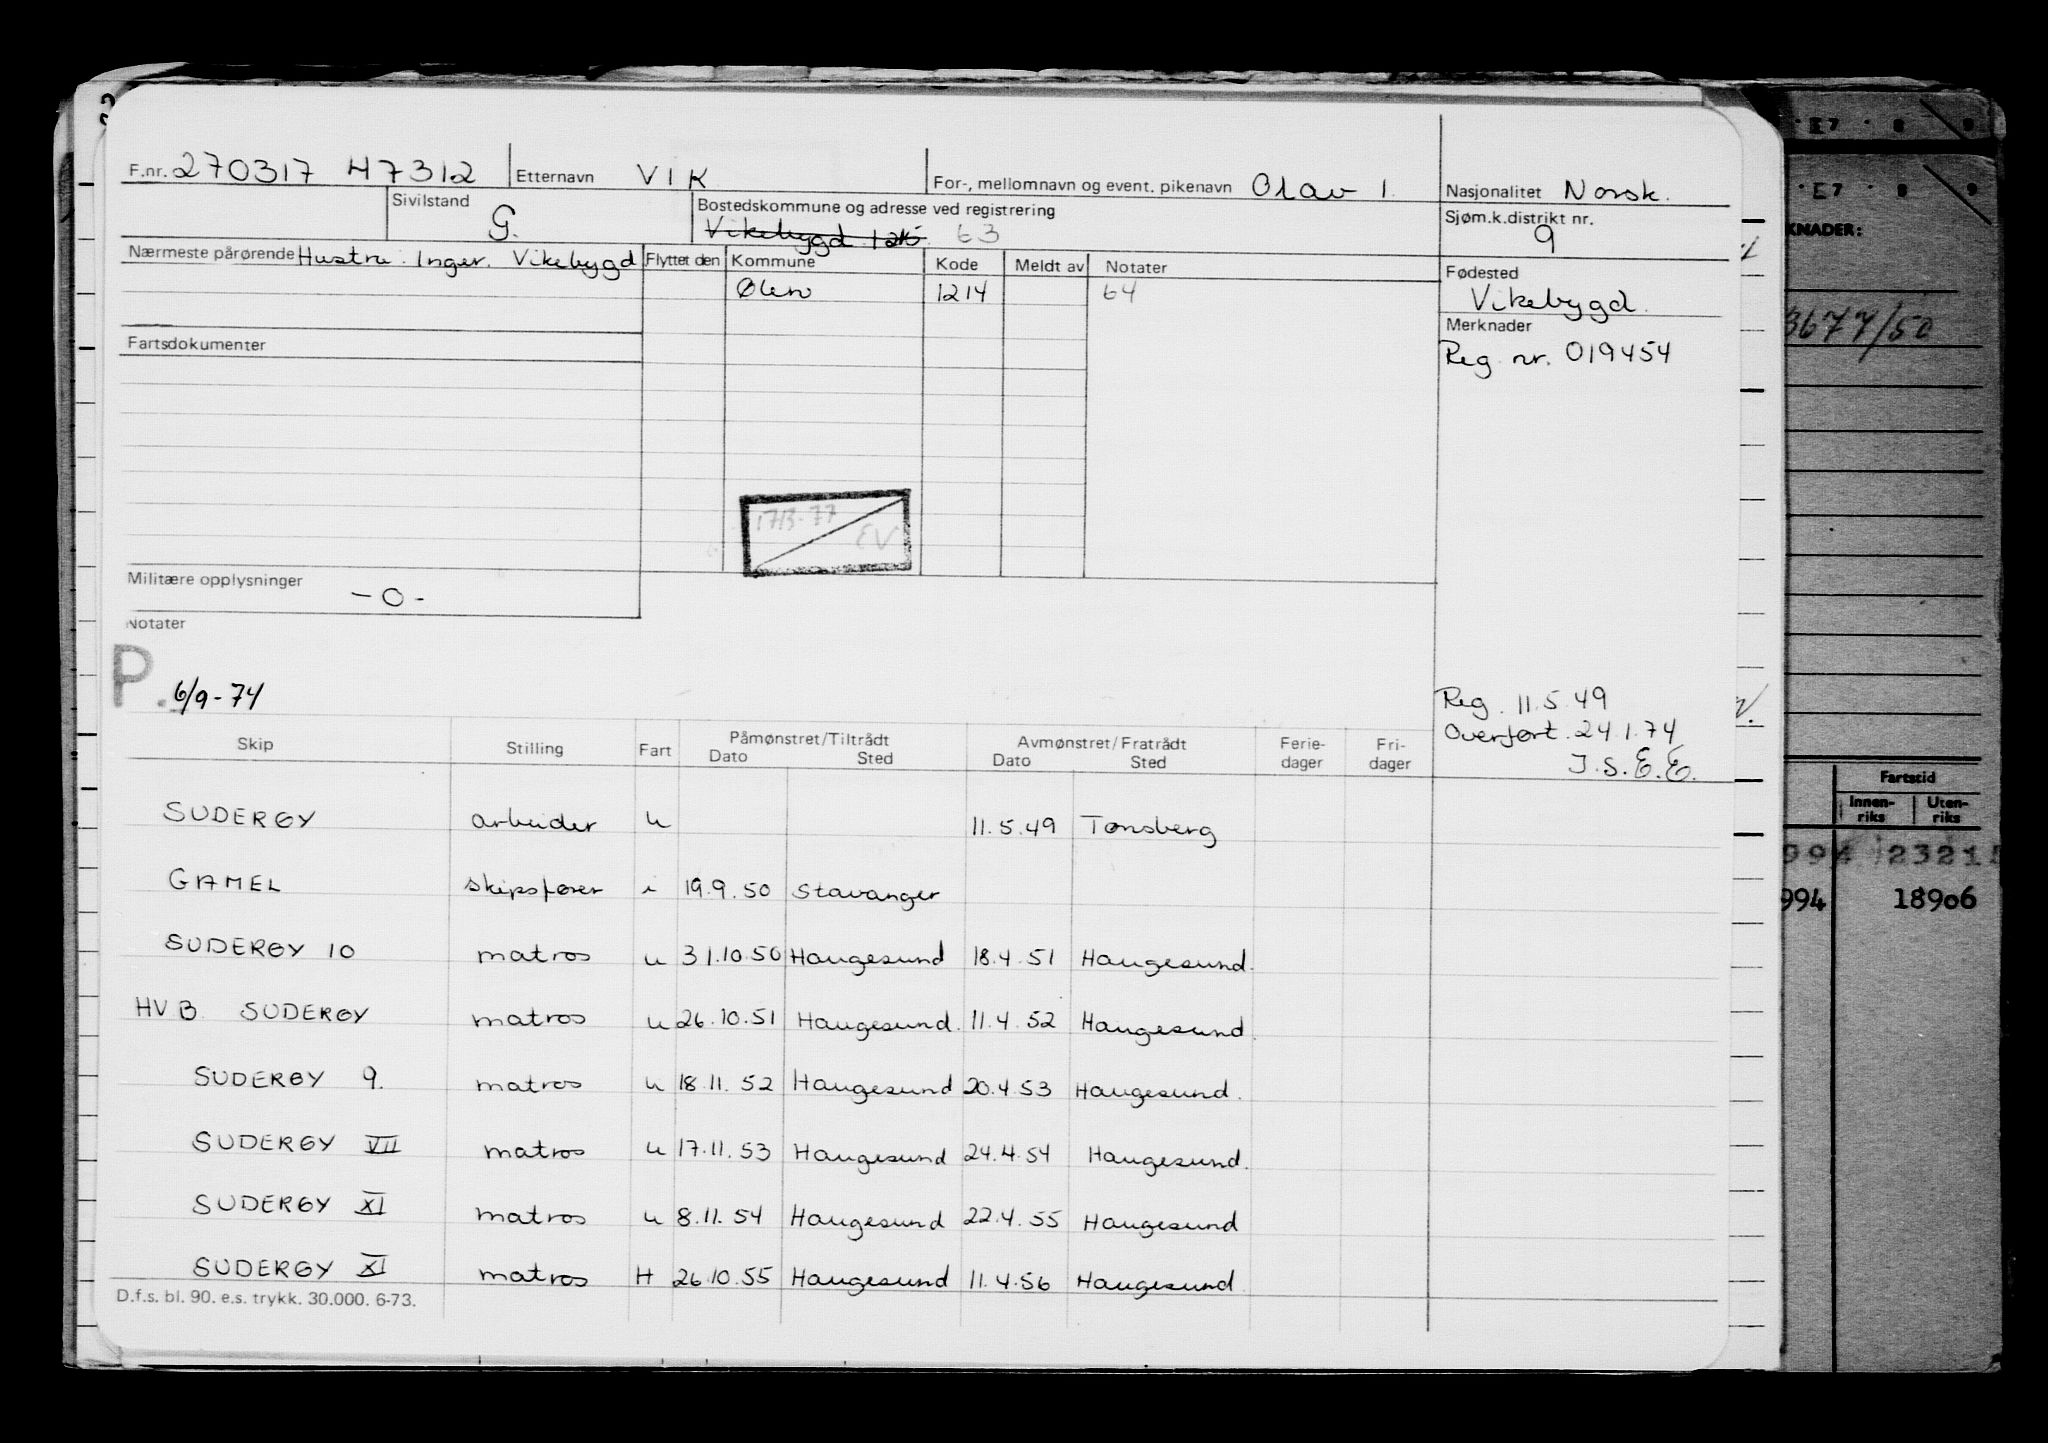 F.nr. 270317 47312 Etternavn VIK For-, mellomnavn og event. pikenavn Olav I. Nasjonalitet Norsk.
Sivilstand G. Bostedskommune og adresse ved registrering Vikebygd 1215. 63 Sjøm.k.distrikt nr. 9
Nærmeste pårørende Hustru: Inger. Vikebygd Flyttet den Kommune Kode Meldt av Notater Fødested
Ølen 1214 64 Vikebygd.
Merknader
Fartsdokumenter Reg. nr. 019454
KNADER:
3677/50
17/3-77
EV
Militære opplysninger -0-
Notater
P. 6/9-74
Reg. 11.5.49
Overført. 24.1.74
J.S.E.E.
Skip Stilling Fart Påmønstret/Tiltrådt Avmønstret/Fratrådt Ferie-dager Fri-dager
Dato Sted Dato Sted
SUDERØY arbeider u 11.5.49 Tønsberg
GAMEL skipsfører i 19.9.50 Stavanger
SUDERØY 10 matros u 31.10.50 Haugesund 18.4.51 Haugesund.
HVB SUDERØY matros u 26.10.51 Haugesund. 11.4.52 Haugesund.
SUDERØY 9. matros u 18.11.52 Haugesund 20.4.53 Haugesund.
SUDERØY VII matros u 17.11.53 Haugesund 24.4.54 Haugesund.
SUDERØY XI matros u 8.11.54 Haugesund 22.4.55 Haugesund
SUDERØY XI matros H 26.10.55 Haugesund 11.4.56 Haugesund
D.f.s. bl. 90. e.s. trykk. 30.000. 6-73.
E7 8 9
E7 8 9
Fartstid
Innen-riks Uten-riks
994 2321
994 18906